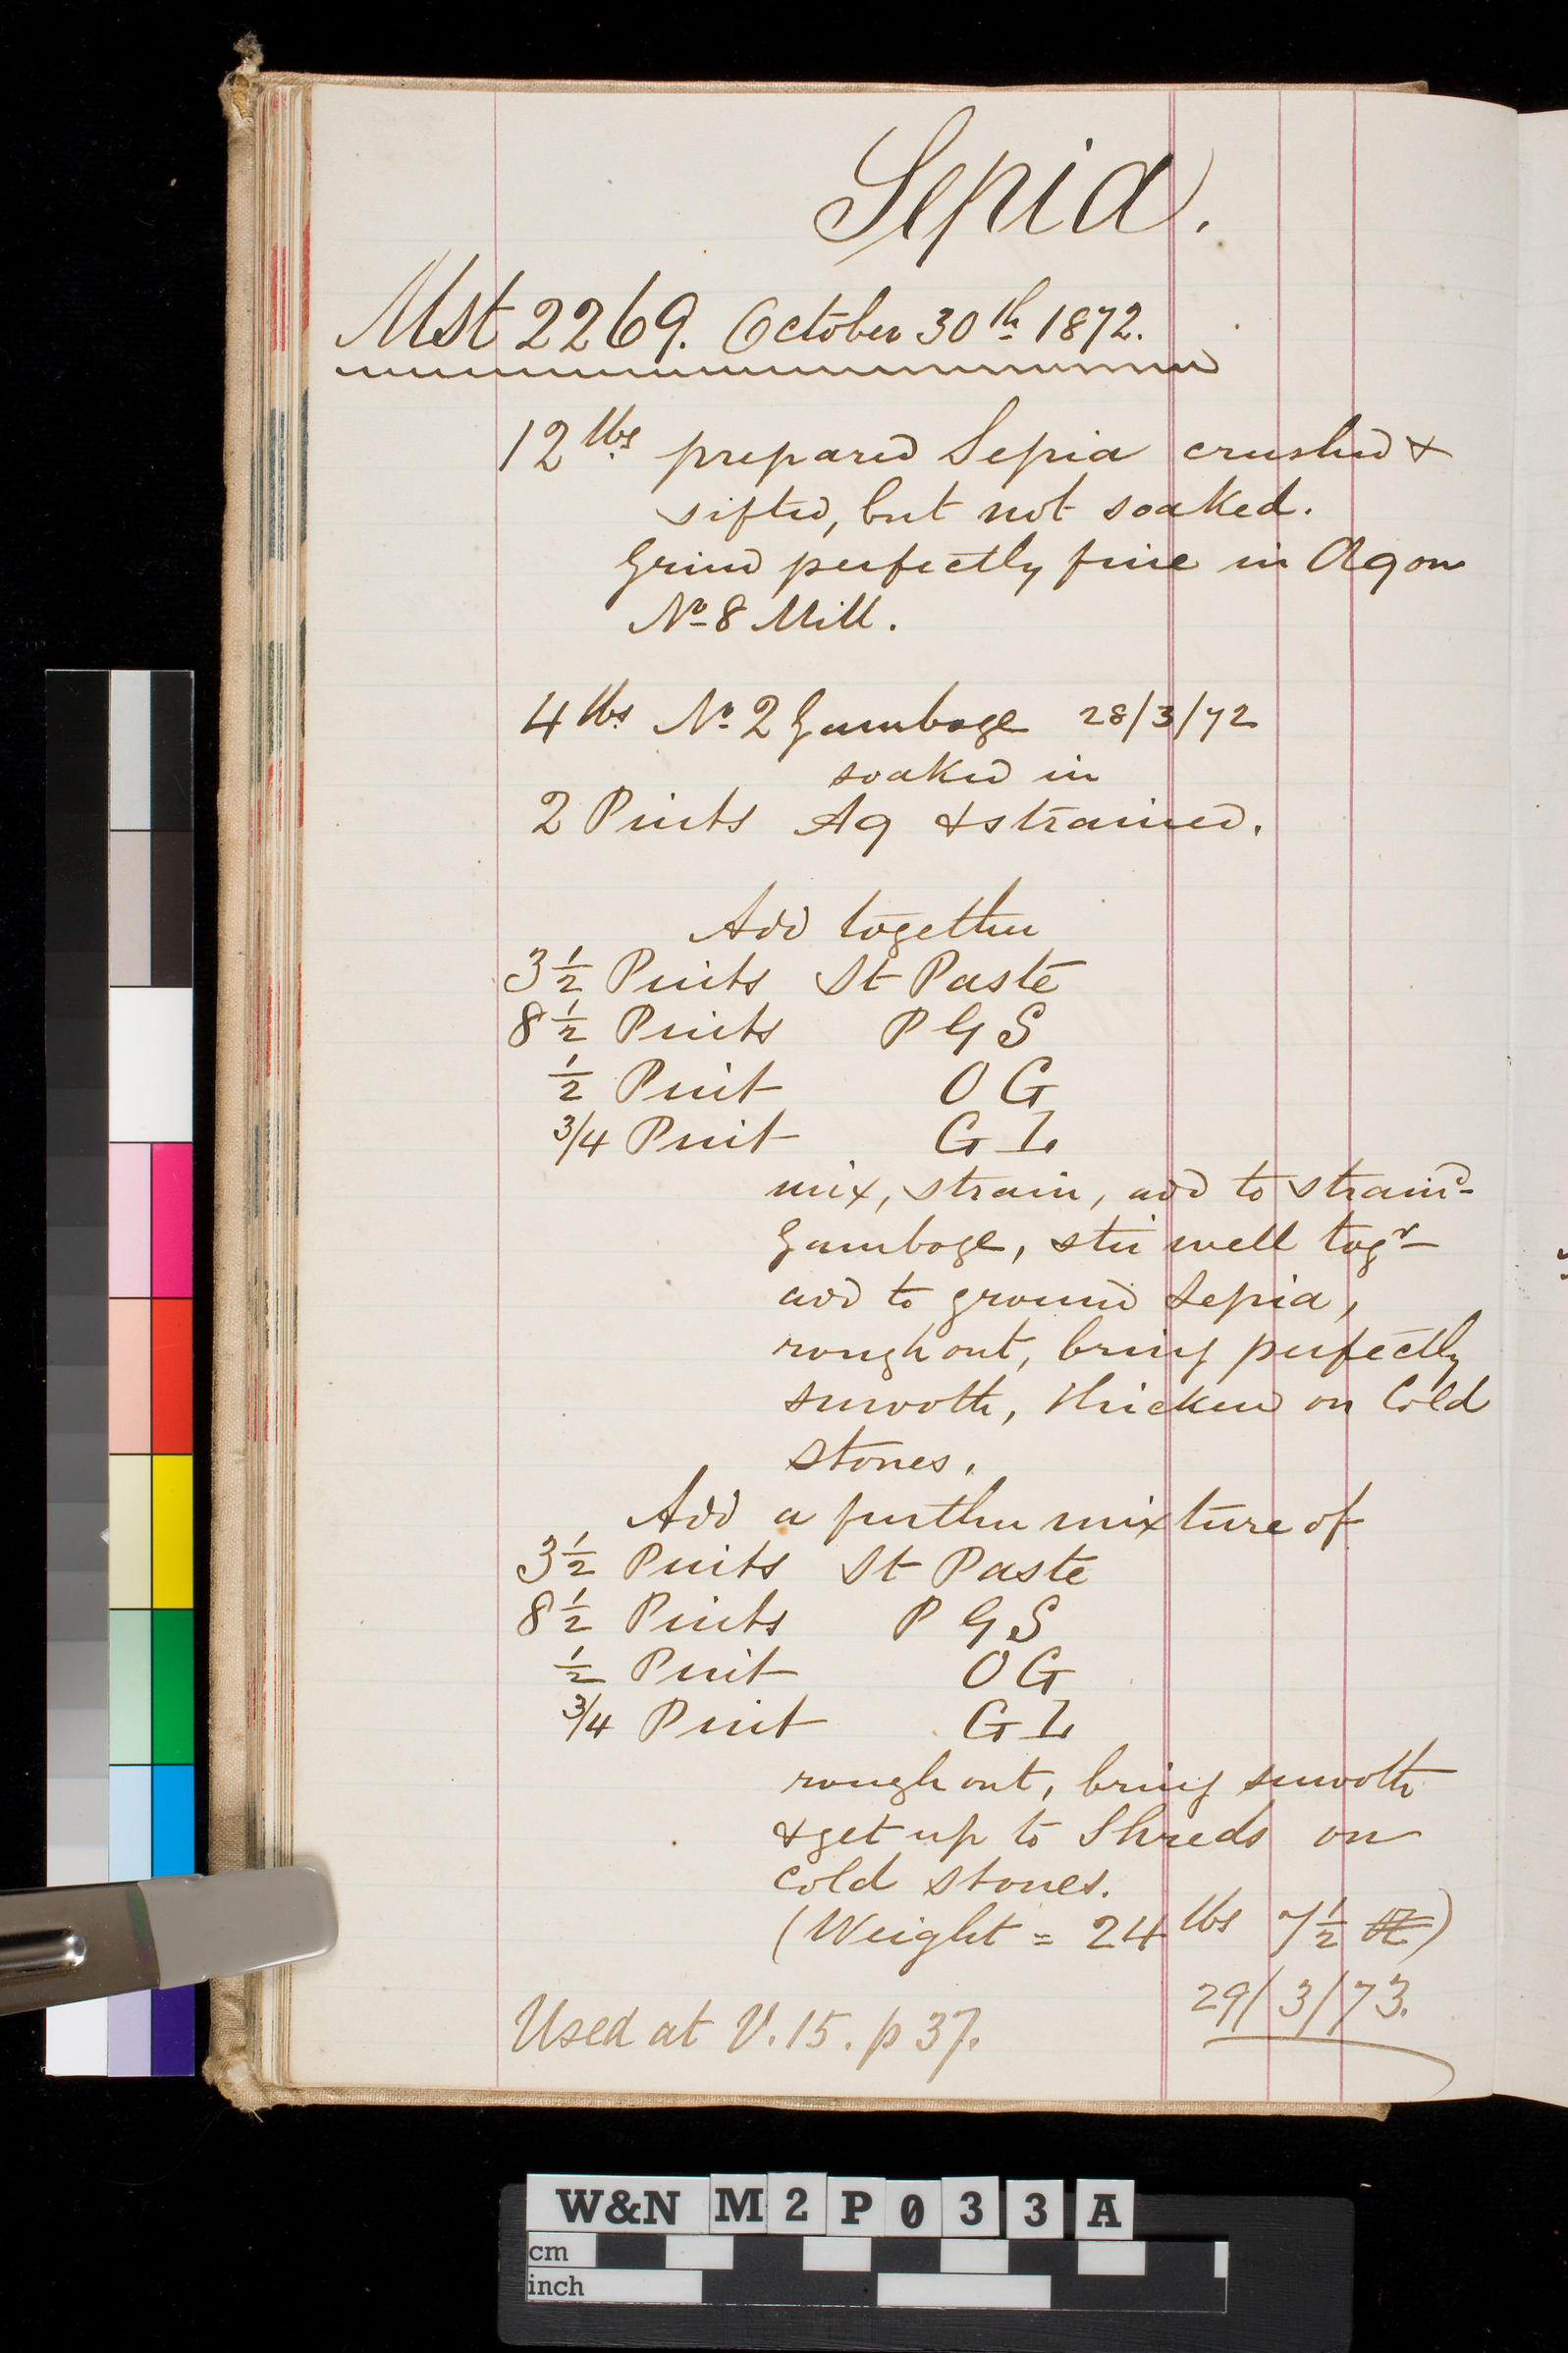 Sepia.
Mst 2269. October 30th 1872.
12 lbs prepared Sepia crushed &
sifted, but not soaked.
Grind perfectly fine in Aq on
No 8 Mill.
4 lbs No 2 Gamboge 28/3/72
soaked in
2 Pints Aq & strained.
Add together
3 1/2 Pints St Paste
8 1/2 Pints P G S
1/2 Pint O G
3/4 Pint G L
mix, strain, add to straind
Gamboge, stir well togr
add to ground Sepia,
rough out, bring perfectly
smooth, thicken on Cold
stones.
Add a further mixture of
3 1/2 Pints St Paste
8 1/2 Pints P G S
1/2 Pint O G
3/4 Pint G L
rough out, bring smooth
& get up to Shreds on
cold stones.
(Weight = 24 lbs 7 1/2)
29/3/73.
Used at V. 15. p 37.
W&N M2P033A
cm
inch